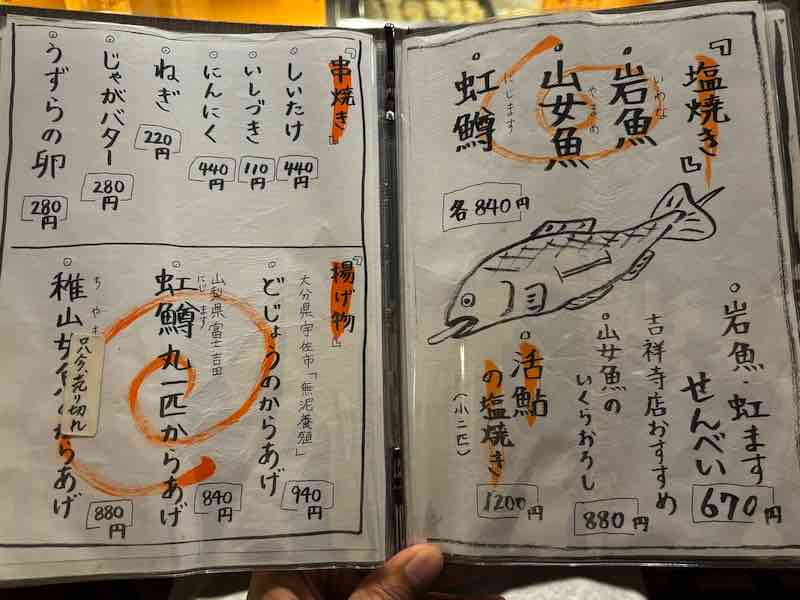 『塩焼き』
いわな
・岩魚
やまめ
・山女魚
にじます
・虹鱒
各840円
・岩魚・虹ます
せんべい
670円
吉祥寺店おすすめ
・山女魚の
いくらおろし
880円
・活鮎
の塩焼き
(小二匹)
1200円
『串焼き』
・しいたけ
440円
・いしづき
110円
・にんにく
440円
・ねぎ
220円
・じゃがバター
280円
・うずらの卵
280円
『揚げ物』
大分県宇佐市「無泥養殖」
・どじょうのからあげ
940円
山梨県富士吉田
にじます
・虹鱒丸一匹からあげ
840円
ちやま
・稚山
からあげ
売り切れ
880円